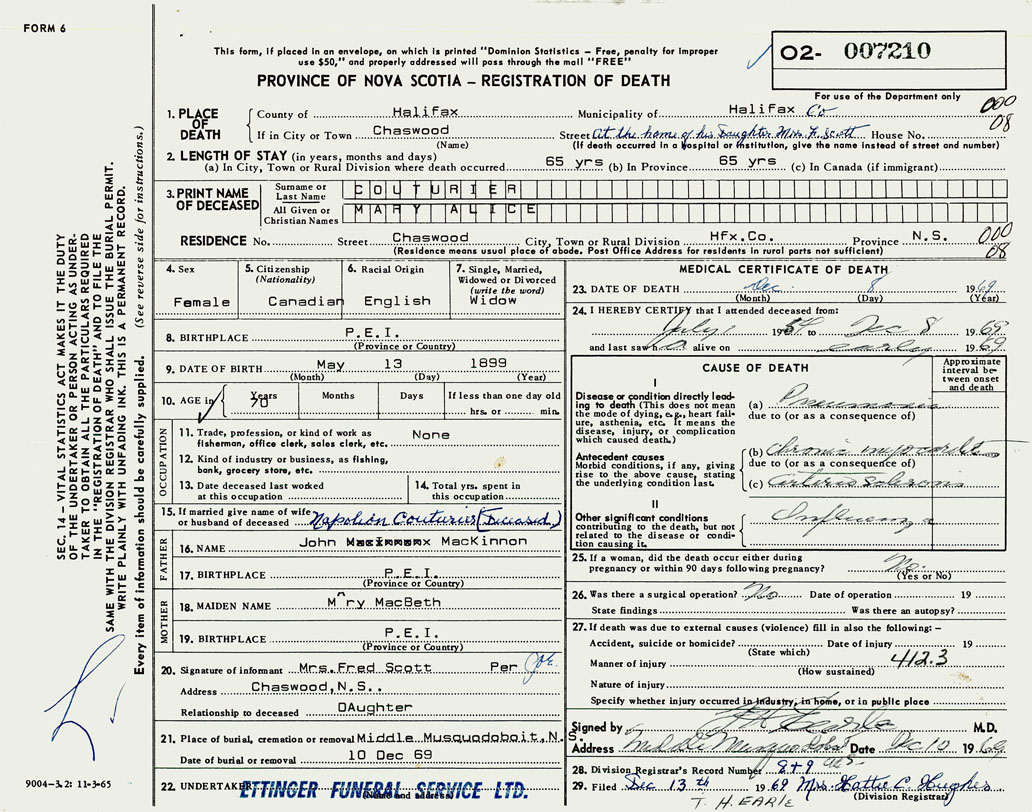 FORM 6
This form, if placed in an envelope, on which is printed "Dominion Statistics – Free, penalty for improper
use $50," and properly addressed will pass through the mail "FREE"
PROVINCE OF NOVA SCOTIA – REGISTRATION OF DEATH
02- 007210
For use of the Department only
000
08
1. PLACE OF DEATH
County of Halifax Municipality of Halifax Co
If in City or Town Chaswood Street At the home of his Daughter Mrs. F. Scott House No.
(Name) (If death occurred in a hospital or institution, give the name instead of street and number)
2. LENGTH OF STAY (in years, months and days)
(a) In City, Town or Rural Division where death occurred 65 yrs (b) In Province 65 yrs (c) In Canada (if immigrant)
3. PRINT NAME OF DECEASED
Surname or Last Name COUTURIER
All Given or Christian Names MARY ALICE
RESIDENCE No. Street Chaswood City, Town or Rural Division Hfx.Co. Province N.S. 000
(Residence means usual place of abode. Post Office Address for residents in rural parts not sufficient) 08
4. Sex
Female
5. Citizenship
(Nationality)
Canadian
6. Racial Origin
English
7. Single, Married,
Widowed or Divorced
(write the word)
Widow
8. BIRTHPLACE P.E.I.
(Province or Country)
9. DATE OF BIRTH May 13 1899
(Month) (Day) (Year)
10. AGE in Years Months Days If less than one day old
70 hrs. or min.
OCCUPATION
11. Trade, profession, or kind of work as None
fisherman, office clerk, sales clerk, etc.
12. Kind of industry or business, as fishing,
bank, grocery store, etc.
13. Date deceased last worked
at this occupation
14. Total yrs. spent in
this occupation
15. If married give name of wife
or husband of deceased Napoleon Couturier (Deceased)
FATHER
16. NAME John MacKinnon
17. BIRTHPLACE P.E.I.
(Province or Country)
MOTHER
18. MAIDEN NAME M^ry MacBeth
19. BIRTHPLACE P.E.I.
(Province or Country)
20. Signature of informant Mrs.Fred Scott Per
Address Chaswood,N.S..
Relationship to deceased DAughter
21. Place of burial, cremation or removal Middle Musquodoboit,N.S.
Date of burial or removal 10 Dec 69
22. UNDERTAKER ETTINGER FUNERAL SERVICE LTD.
(Name and address)
MEDICAL CERTIFICATE OF DEATH
23. DATE OF DEATH Dec. 8 1969
(Month) (Day) (Year)
24. I HEREBY CERTIFY that I attended deceased from:
July 19 to Dec 8 1969
and last saw h alive on early 1969
CAUSE OF DEATH
Approximate
interval be-
tween onset
and death
I
Disease or condition directly lead-
ing to death (This does not
mean the mode of dying, e.g., heart fail-
ure, asthenia, etc. It means the
disease, injury, or complication
which caused death.)
(a) Pneumonia
due to (or as a consequence of)
Antecedent causes
Morbid conditions, if any, giving
rise to the above cause, stating
the underlying condition last.
(b) Chronic myocarditis
due to (or as a consequence of)
(c) arterio sclerosis
II
Other significant conditions
contributing to the death, but not
related to the disease or condi-
tion causing it.
Influenza
25. If a woman, did the death occur either during
pregnancy or within 90 days following pregnancy? No.
(Yes or No)
26. Was there a surgical operation? No Date of operation 19
State findings Was there an autopsy?
27. If death was due to external causes (violence) fill in also the following: –
Accident, suicide or homicide? Date of injury 19
(State which)
Manner of injury 412.3
(How sustained)
Nature of injury
Specify whether injury occurred in industry, in home, or in public place
Signed by M.D.
Address Middle Musquodoboit Date Dec 10 1969
28. Division Registrar's Record Number
29. Filed Dec 13th 1969 Mrs. Hattie C Hughes
(Division Registrar)
T. H. EARLE
SEC. 14 – VITAL STATISTICS ACT MAKES IT THE DUTY
OF THE UNDERTAKER OR PERSON ACTING AS UNDER-
TAKER TO OBTAIN ALL THE PARTICULARS REQUIRED
IN THE "REGISTRATION OF DEATH" AND TO FILE THE
SAME WITH THE DIVISION REGISTRAR WHO SHALL ISSUE THE BURIAL PERMIT.
WRITE PLAINLY WITH UNFADING INK. THIS IS A PERMANENT RECORD.
Every item of information should be carefully supplied. (See reverse side for instructions.)
9004-3.2: 11-3-65